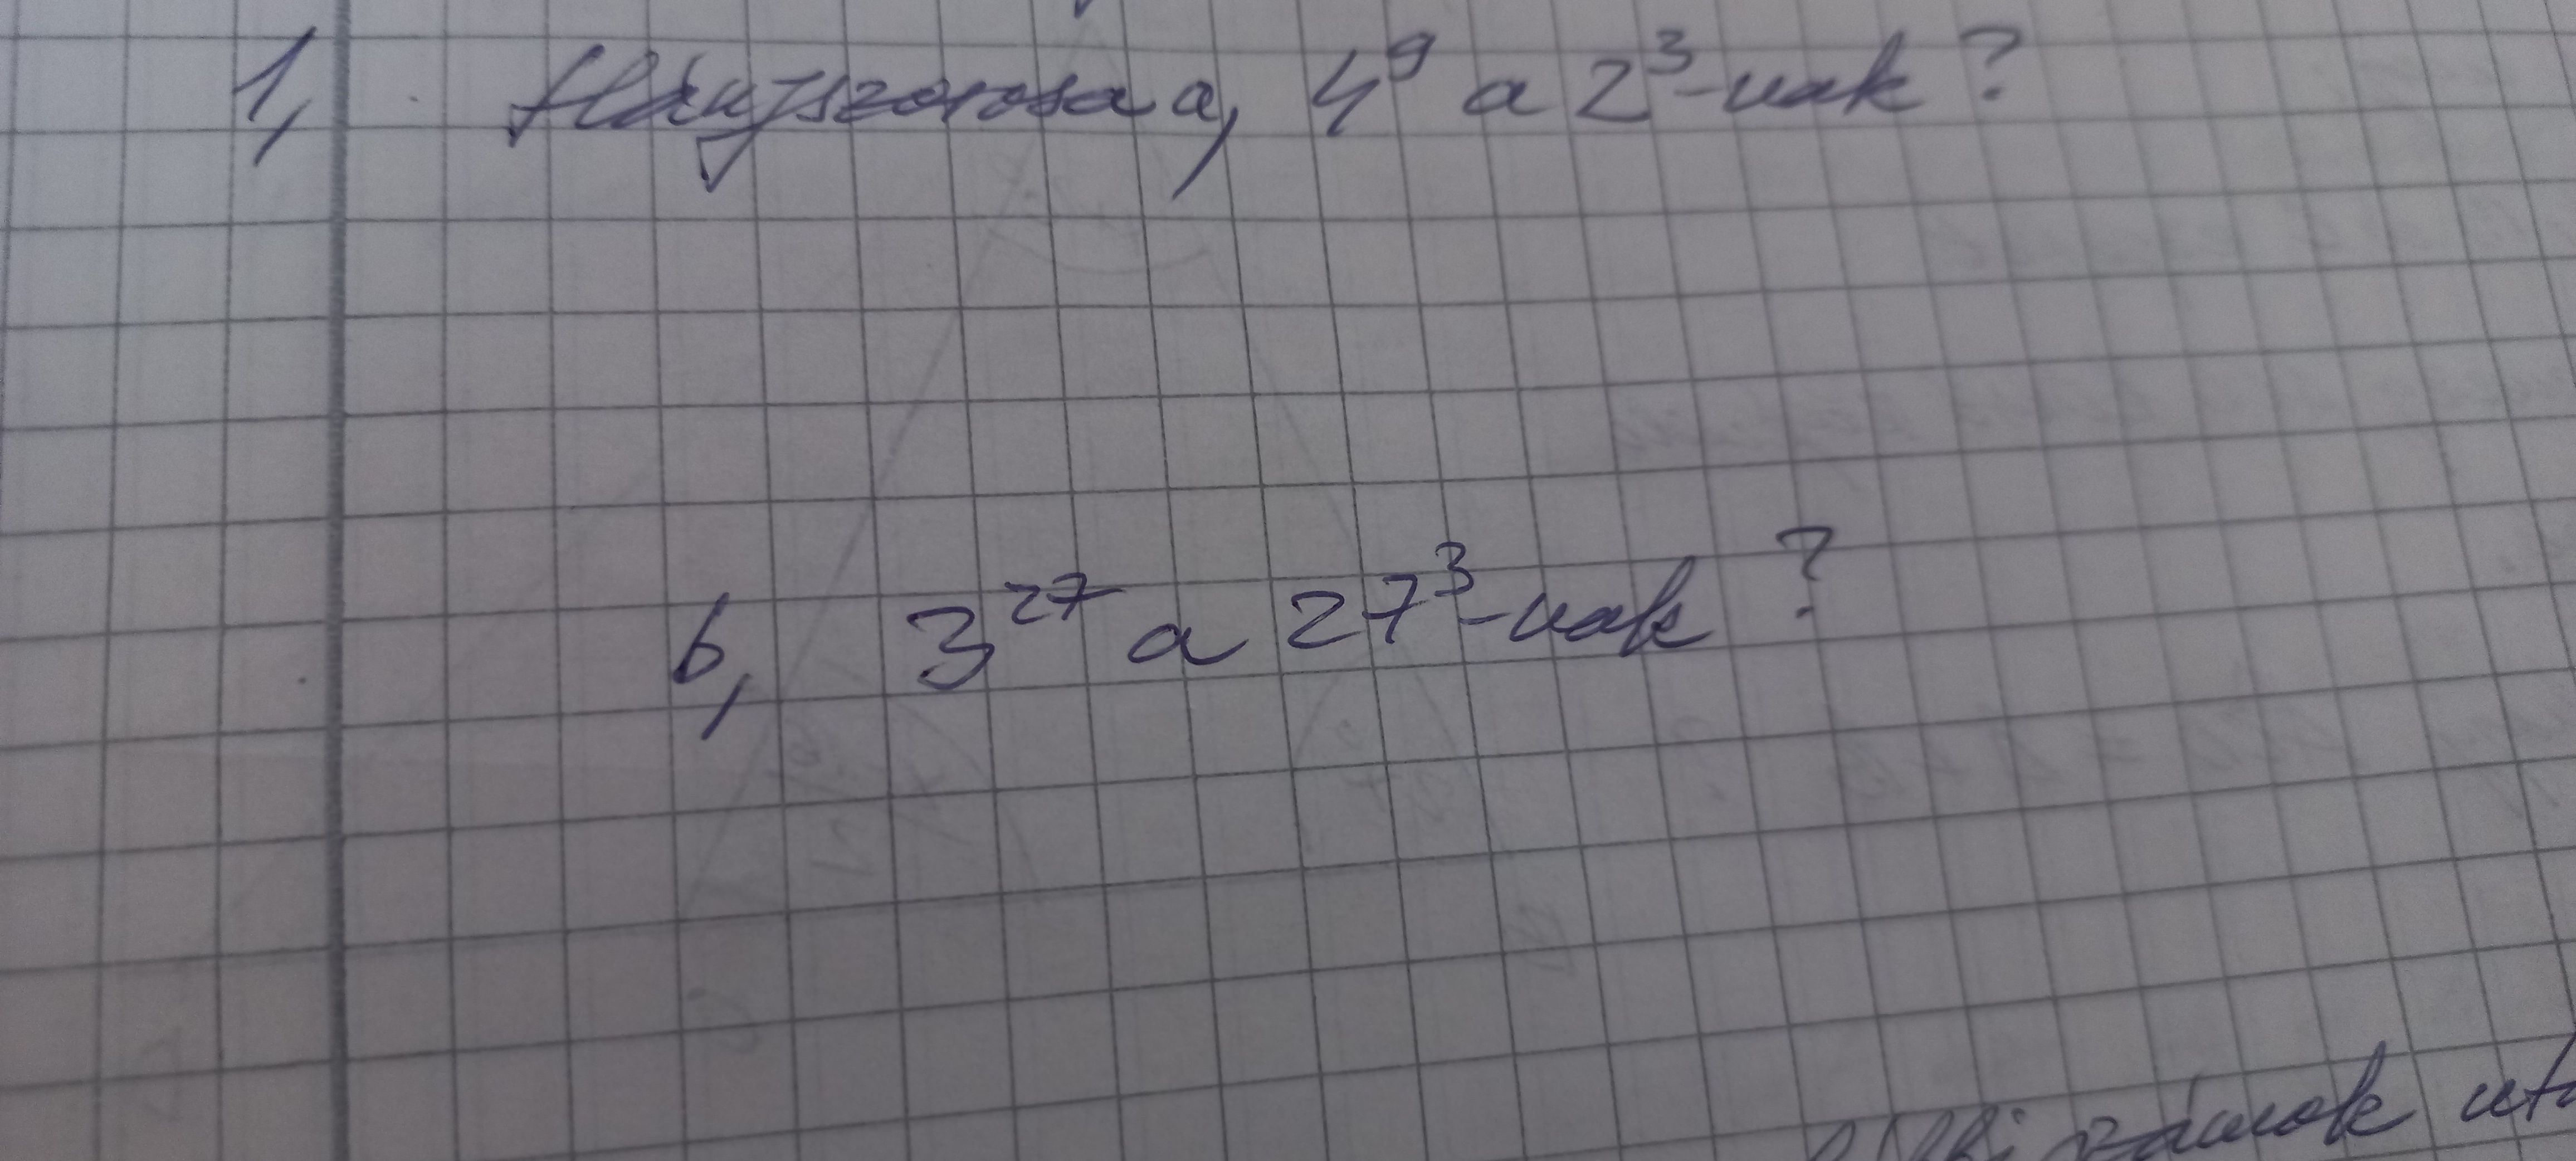 1, Hányszorosa a, 4⁹ a 2³-nak?
b, 3²⁷ a 27³-nak?
számok